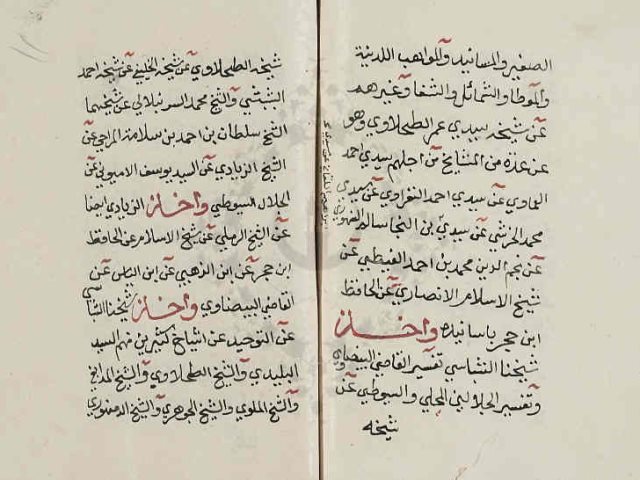 الصغير والمسانيد والمواهب اللدنية
والموطا والشمائل والشفا وغيرهم
عن شيخه سيدي عمر الطحلاوي وهو
عن عدة من المشايخ من اجلهم سيدي احمد
العماوي عن سيدي احمد النفراوي عن سيدي
محمد الخرشي عن سيدي بن النجا سالم السنهوري
عن نجم الدين محمد بن احمد الغيطي عن
شيخ الاسلام الانصاري عن الحافظ
ابن حجر باسانيده واخذ
شيخنا النشابي تفسير القاضي البيضاوي
وتفسير الجلالين المحلي والسيوطي عن
شيخه
شيخه الطحلاوي عن شيخه الخليفي عن شيخه احمد
البشبيشي والشيخ محمد الشرنبلالي عن شيخهما
الشيخ سلطان بن احمد بن سلامة المزاحي عن
الشيخ الزيادي عن السيد يوسف الارميوني عن
الجلال السيوطي واخذ الزيادي ايضا
عن الشيخ الرملي عن شيخ الاسلام عن الحافظ
ابن حجر عن ابن الذهبي عن ابن الياس عن
القاضي البيضاوي واخذ شيخنا النشابي
عن التوحيد عن اشياخ كثيرين منهم السيد
البليدي والشيخ الطحلاوي والشيخ المدابغي
والشيخ الملوي والشيخ الجوهري والشيخ الدمنهوري